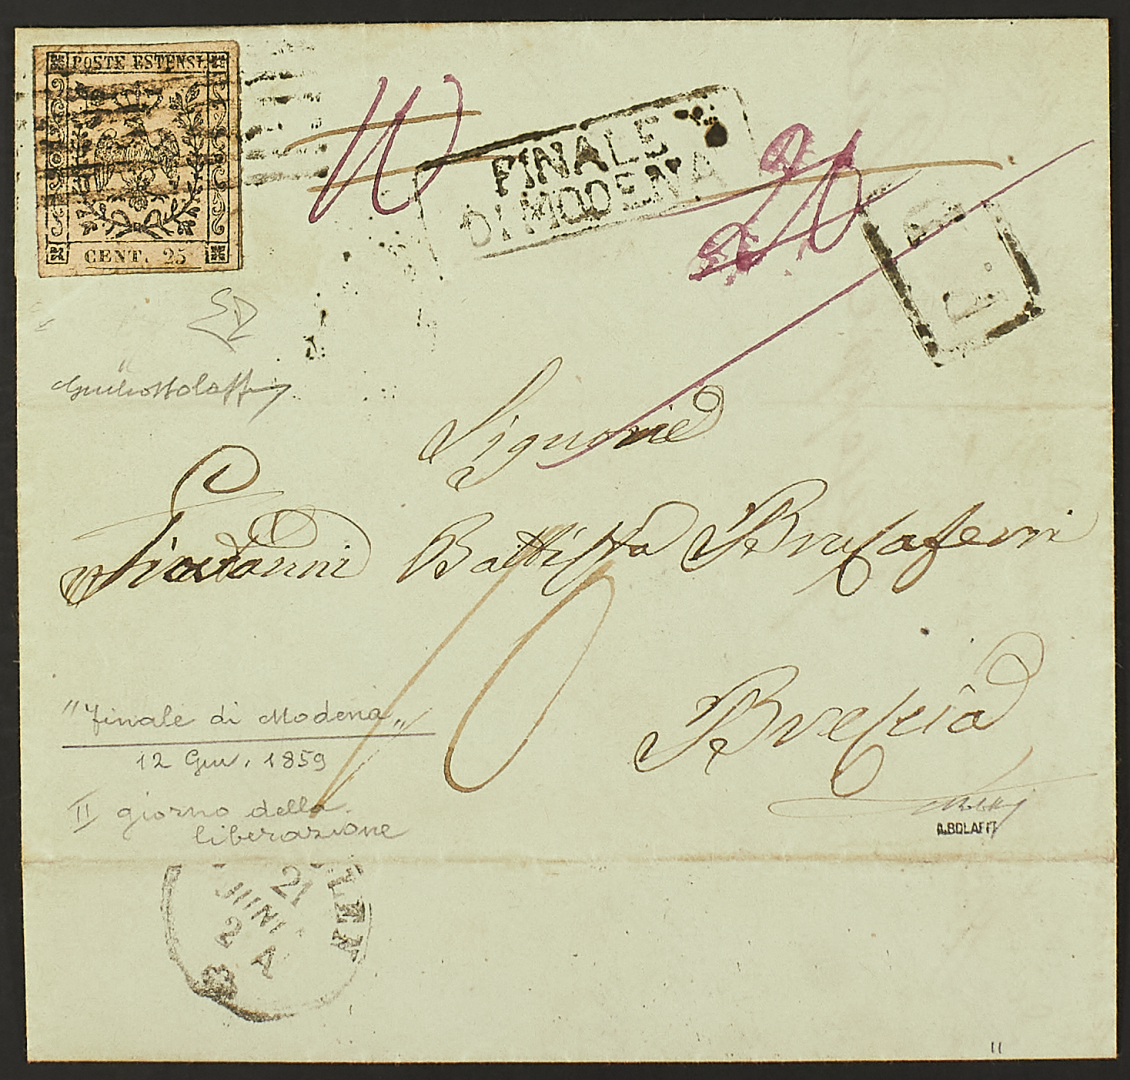 POSTE ESTENSI
CENT. 25
10
FINALE
DI MODENA
Giulio Bolaffi
Signore
Giovanni Battista
Brescia
"Finale di Modena"
12 Giu. 1859
II giorno della
liberazione
A.BOLAFFI
21
JUNI
2 A